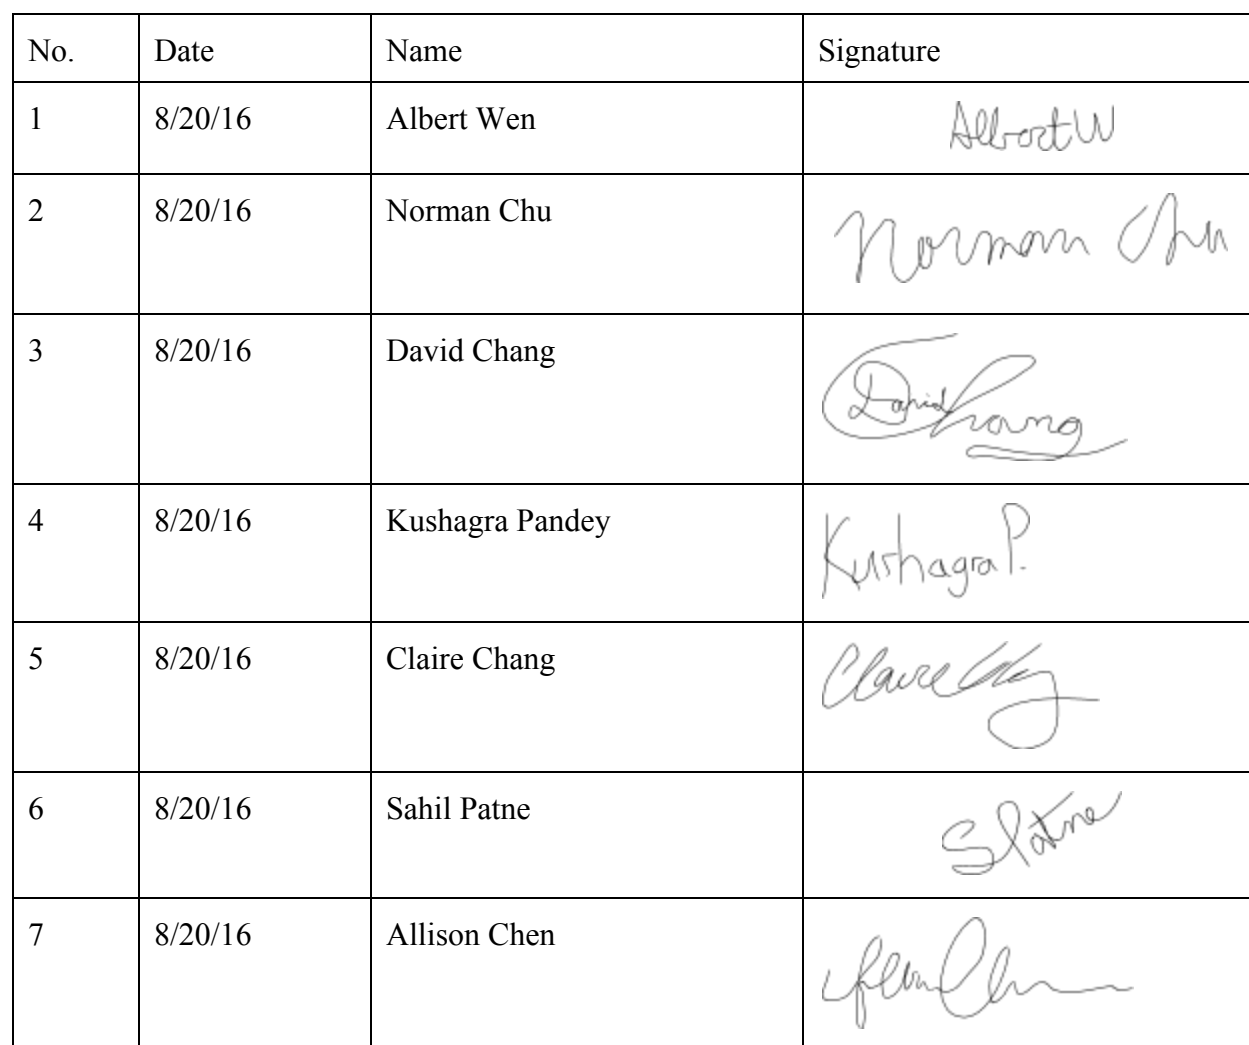 No. Date Name Signature
1 8/20/16 Albert Wen Albert W
2 8/20/16 Norman Chu Norman Chu
3 8/20/16 David Chang David Chang
4 8/20/16 Kushagra Pandey Kushagra P.
5 8/20/16 Claire Chang Claire
6 8/20/16 Sahil Patne S Patne
7 8/20/16 Allison Chen